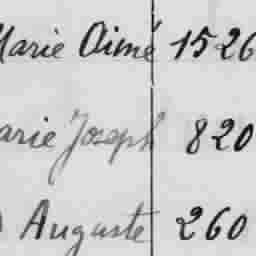 Marie Aimé 1526
Marie Joseph 820
Auguste 260